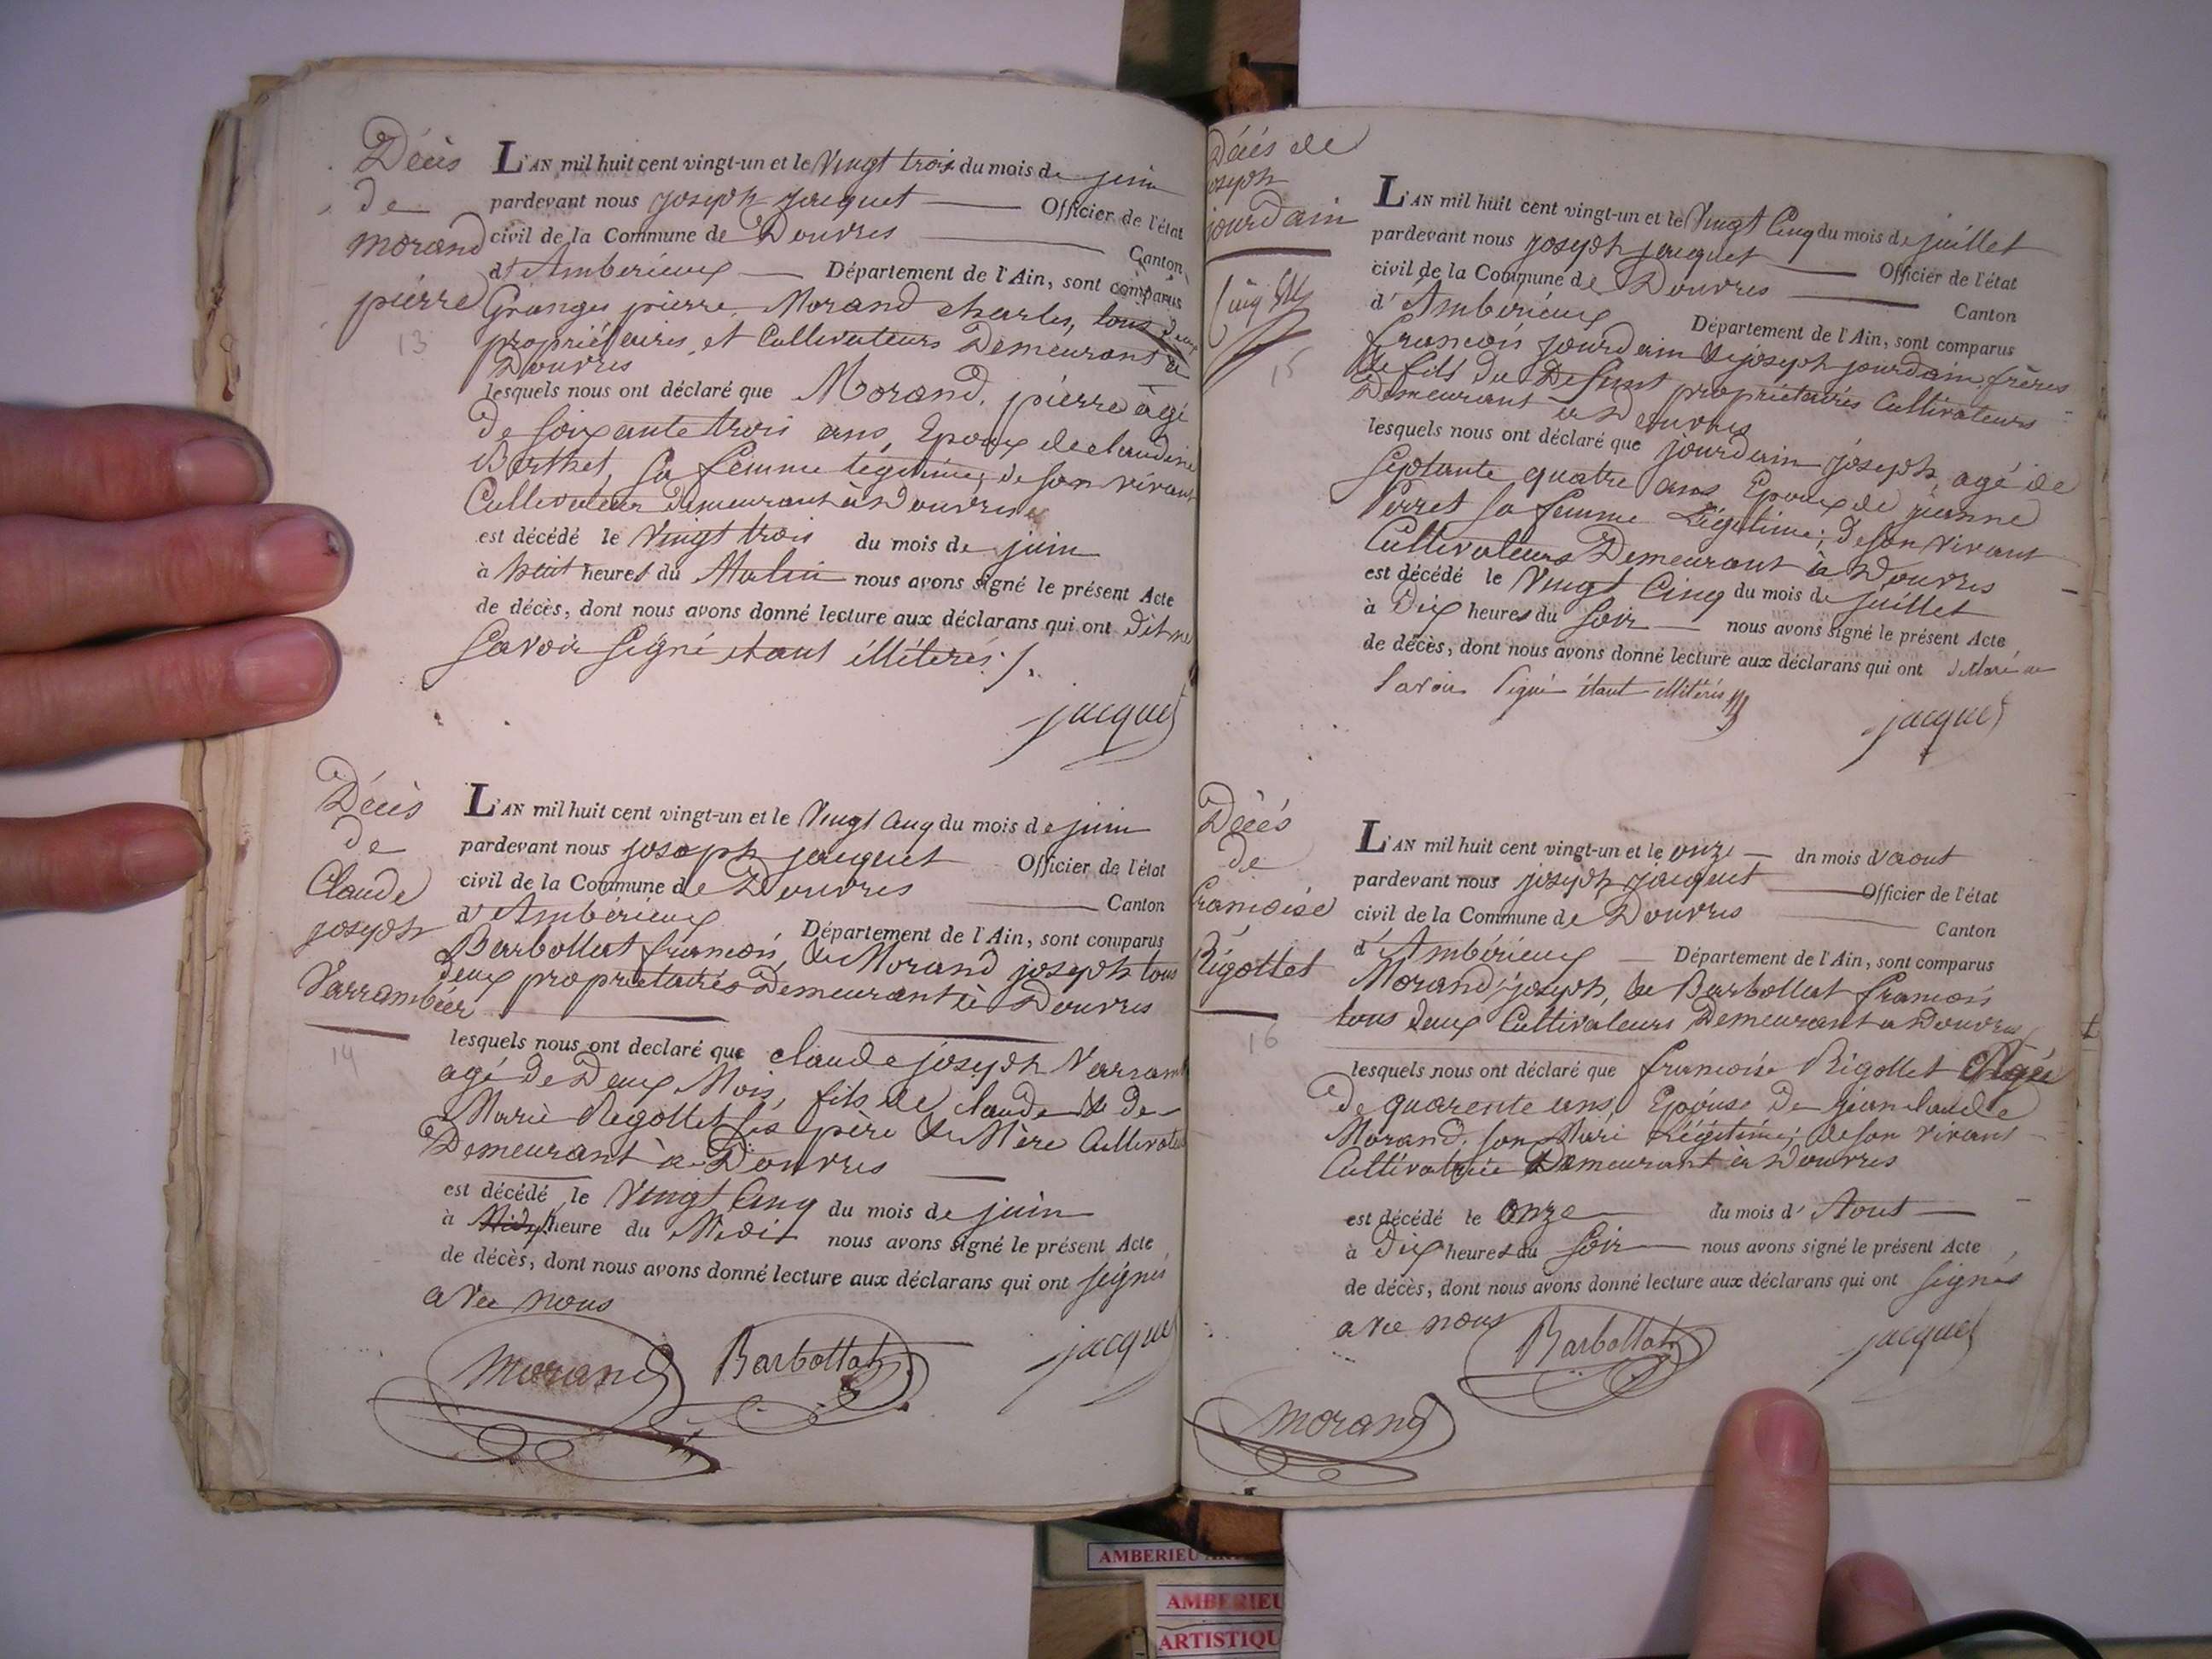 Décès
de
morand
pierre
13
L'AN mil huit cent vingt-un et le Vingt trois du mois de juin
pardevant nous joseph jacquet Officier de l'état
civil de la Commune de Douvres Canton
d'Amberieux Département de l'Ain, sont comparus
Granges pierre, Morand charles, tous deux
propriétaires et Cultivateurs Demeurant à
Douvres
lesquels nous ont déclaré que Morand, pierre âgé
de soixante trois ans, Epoux de claudine
Berthet, sa femme légitime, de son vivant
Cultivateur demeurant à Douvres
est décédé le Vingt trois du mois de juin
à huit heures du Matin nous avons signé le présent Acte
de décès, dont nous avons donné lecture aux déclarans qui ont dit ne
savoir signé etant illiterés ./.
jacquet
Décès
de
Claude
joseph
Varrambier
14
L'AN mil huit cent vingt-un et le Vingt Cinq du mois de juin
pardevant nous joseph jacquet Officier de l'état
civil de la Commune de Douvres Canton
d'Ambérieux Département de l'Ain, sont comparus
Barbollat francois, & Morand joseph tous
deux propriétairés Demeurant à Douvres
lesquels nous ont declaré que claude joseph Varram
agé de Deux Mois, fils de claude & de
Marie Rigollet ses père & Mère Cultivate
Demeurant à Douvres
est décédé le Vingt Cinq du mois de juin
à heure du Midi nous avons signé le présent Acte
de décès, dont nous avons donné lecture aux déclarans qui ont signés
avec nous
Morand Barbollat jacquet
Décés de
oseph
jourdain
15
L'AN mil huit cent vingt-un et le Vingt Cinq du mois de juillet
pardevant nous joseph jacquet Officier de l'état
civil de la Commune de Douvres Canton
d'Ambérieux Département de l'Ain, sont comparus
francois jourdain & joseph jourdain frères
& fils du Defunt propriétairés Cultivateurs
Demeurant à Douvres
lesquels nous ont déclaré que jourdain joseph, agé de
septante quatre ans Epoux de jeanne
Perret sa femme Légitime; de son vivant
Cultivateurs Demeurant à Douvres
est décédé le Vingt Cinq du mois de juillet
à Dix heures du Soir nous avons signé le présent Acte
de décès, dont nous avons donné lecture aux déclarans qui ont declaré ne
savoir signé étant illitérés
jacquet
Décés
de
francoise
Rigollet
16
L'AN mil huit cent vingt-un et le onze dn mois d'aout
pardevant nous joseph jacquet Officier de l'état
civil de la Commune de Douvres Canton
d'Ambérieux Département de l'Ain, sont comparus
Morand joseph, & Barbollat francois
tous deux Cultivateurs Demeurant a Douvres
lesquels nous ont déclaré que francoise Rigollet Agée
de quarente ans, Epouse de jean claude
Morand, son Mari Légitime; de son vivant
Cultivatrice Demeurant à Douvres
est décédé le onze du mois d'Aout
à Dix heures du Soir nous avons signé le présent Acte
de décès, dont nous avons donné lecture aux déclarans qui ont signés
avec nous
Barbollat jacquet
Morand
AMBERIEU
AMBERIEU
ARTISTIQU